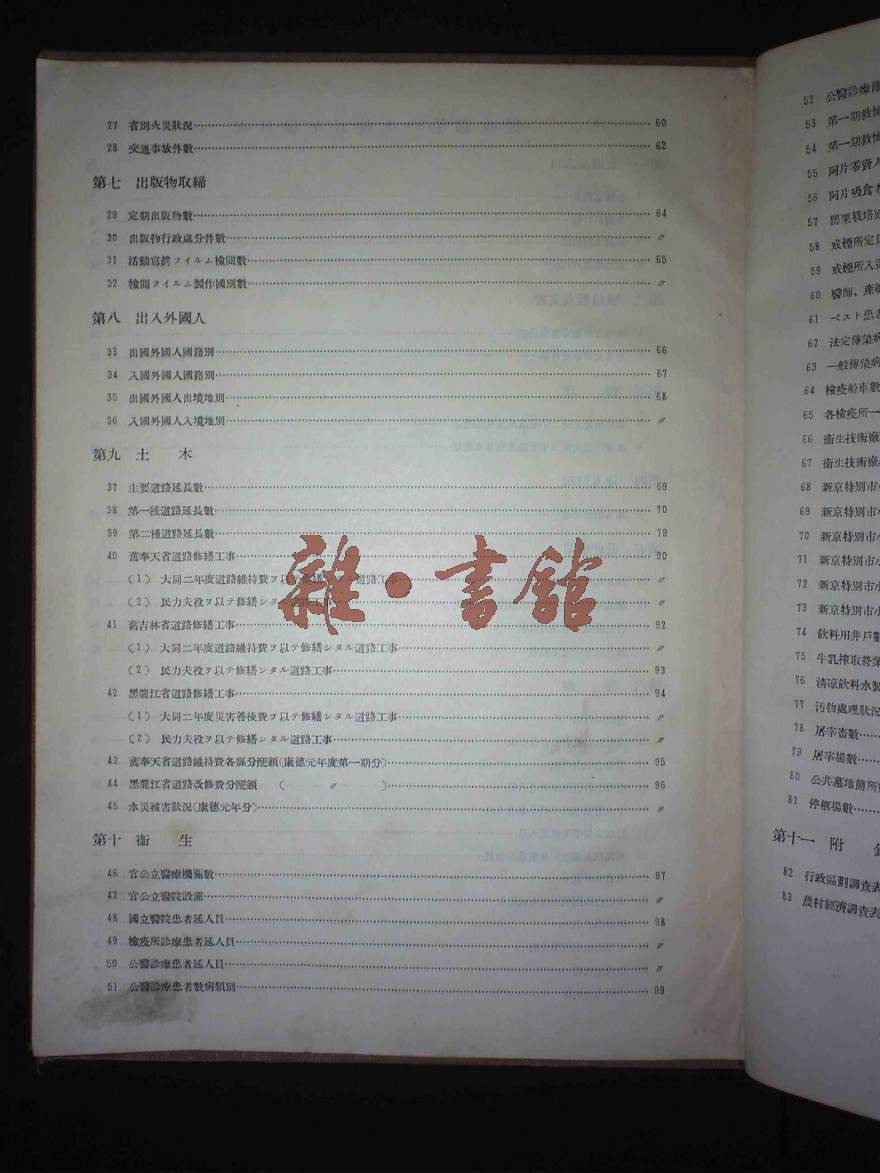 27 省別火災狀況 60
28 交通事故件數 62
第七 出版物取締
29 定期出版物數 64
30 出版物行政處分件數 〃
31 活動寫眞フイルム檢閱數 65
32 檢閱フイルム製作國別數 〃
第八 出入外國人
33 出國外國人國籍別 66
34 入國外國人國籍別 67
35 出國外國人出境地別 68
36 入國外國人入境地別 〃
第九 土木
37 主要道路延長數 69
38 第一種道路延長數 70
39 第二種道路延長數 79
40 舊奉天省道路修繕工事 90
(1) 大同二年度道路維持費ヲ以テ修繕シタル道路工事 〃
(2) 民力夫役ヲ以テ修繕シタル道路工事 〃
41 舊吉林省道路修繕工事 92
(1) 大同二年度道路維持費ヲ以テ修繕シタル道路工事 〃
(2) 民力夫役ヲ以テ修繕シタル道路工事 93
42 黑龍江省道路修繕工事 94
(1) 大同二年度災害善後費ヲ以テ修繕シタル道路工事 〃
(2) 民力夫役ヲ以テ修繕シタル道路工事 〃
43 舊奉天省道路維持費各縣分配額(康德元年度第一期分) 95
44 黑龍江省道路改修費分配額 ( 〃 ) 96
45 水災被害狀況(康德元年分) 〃
第十 衞生
46 官公立醫療機關數 97
47 官公立醫院設備 〃
48 國立醫院患者延人員 98
49 檢疫所診療患者延人員 〃
50 公醫診療患者延人員 〃
51 公醫診療患者數病類別 99
雜・書館
52 公醫診療傳
53 第一期救恤
54 第一期救恤
55 阿片零賣人
56 阿片吸食者
57 罌粟栽培面
58 戒煙所定員
59 戒煙所入退
60 醫師、產
61 ペスト患者
62 法定傳染病
63 一般傳染病
64 檢疫船車數
65 各檢疫所一
66 衞生技術廠
67 衞生技術廠
68 新京特別市
69 新京特別市
70 新京特別市
71 新京特別市
72 新京特別市
73 新京特別市
74 飲料用井戶數
75 牛乳搾取營業
76 清凉飲料水製
77 汚物處理狀況
78 屠宰畜數
79 屠宰場數
80 公共墓地箇所
81 停柩場數
第十一 附
82 行政區劃調查表
83 農村經濟調查表